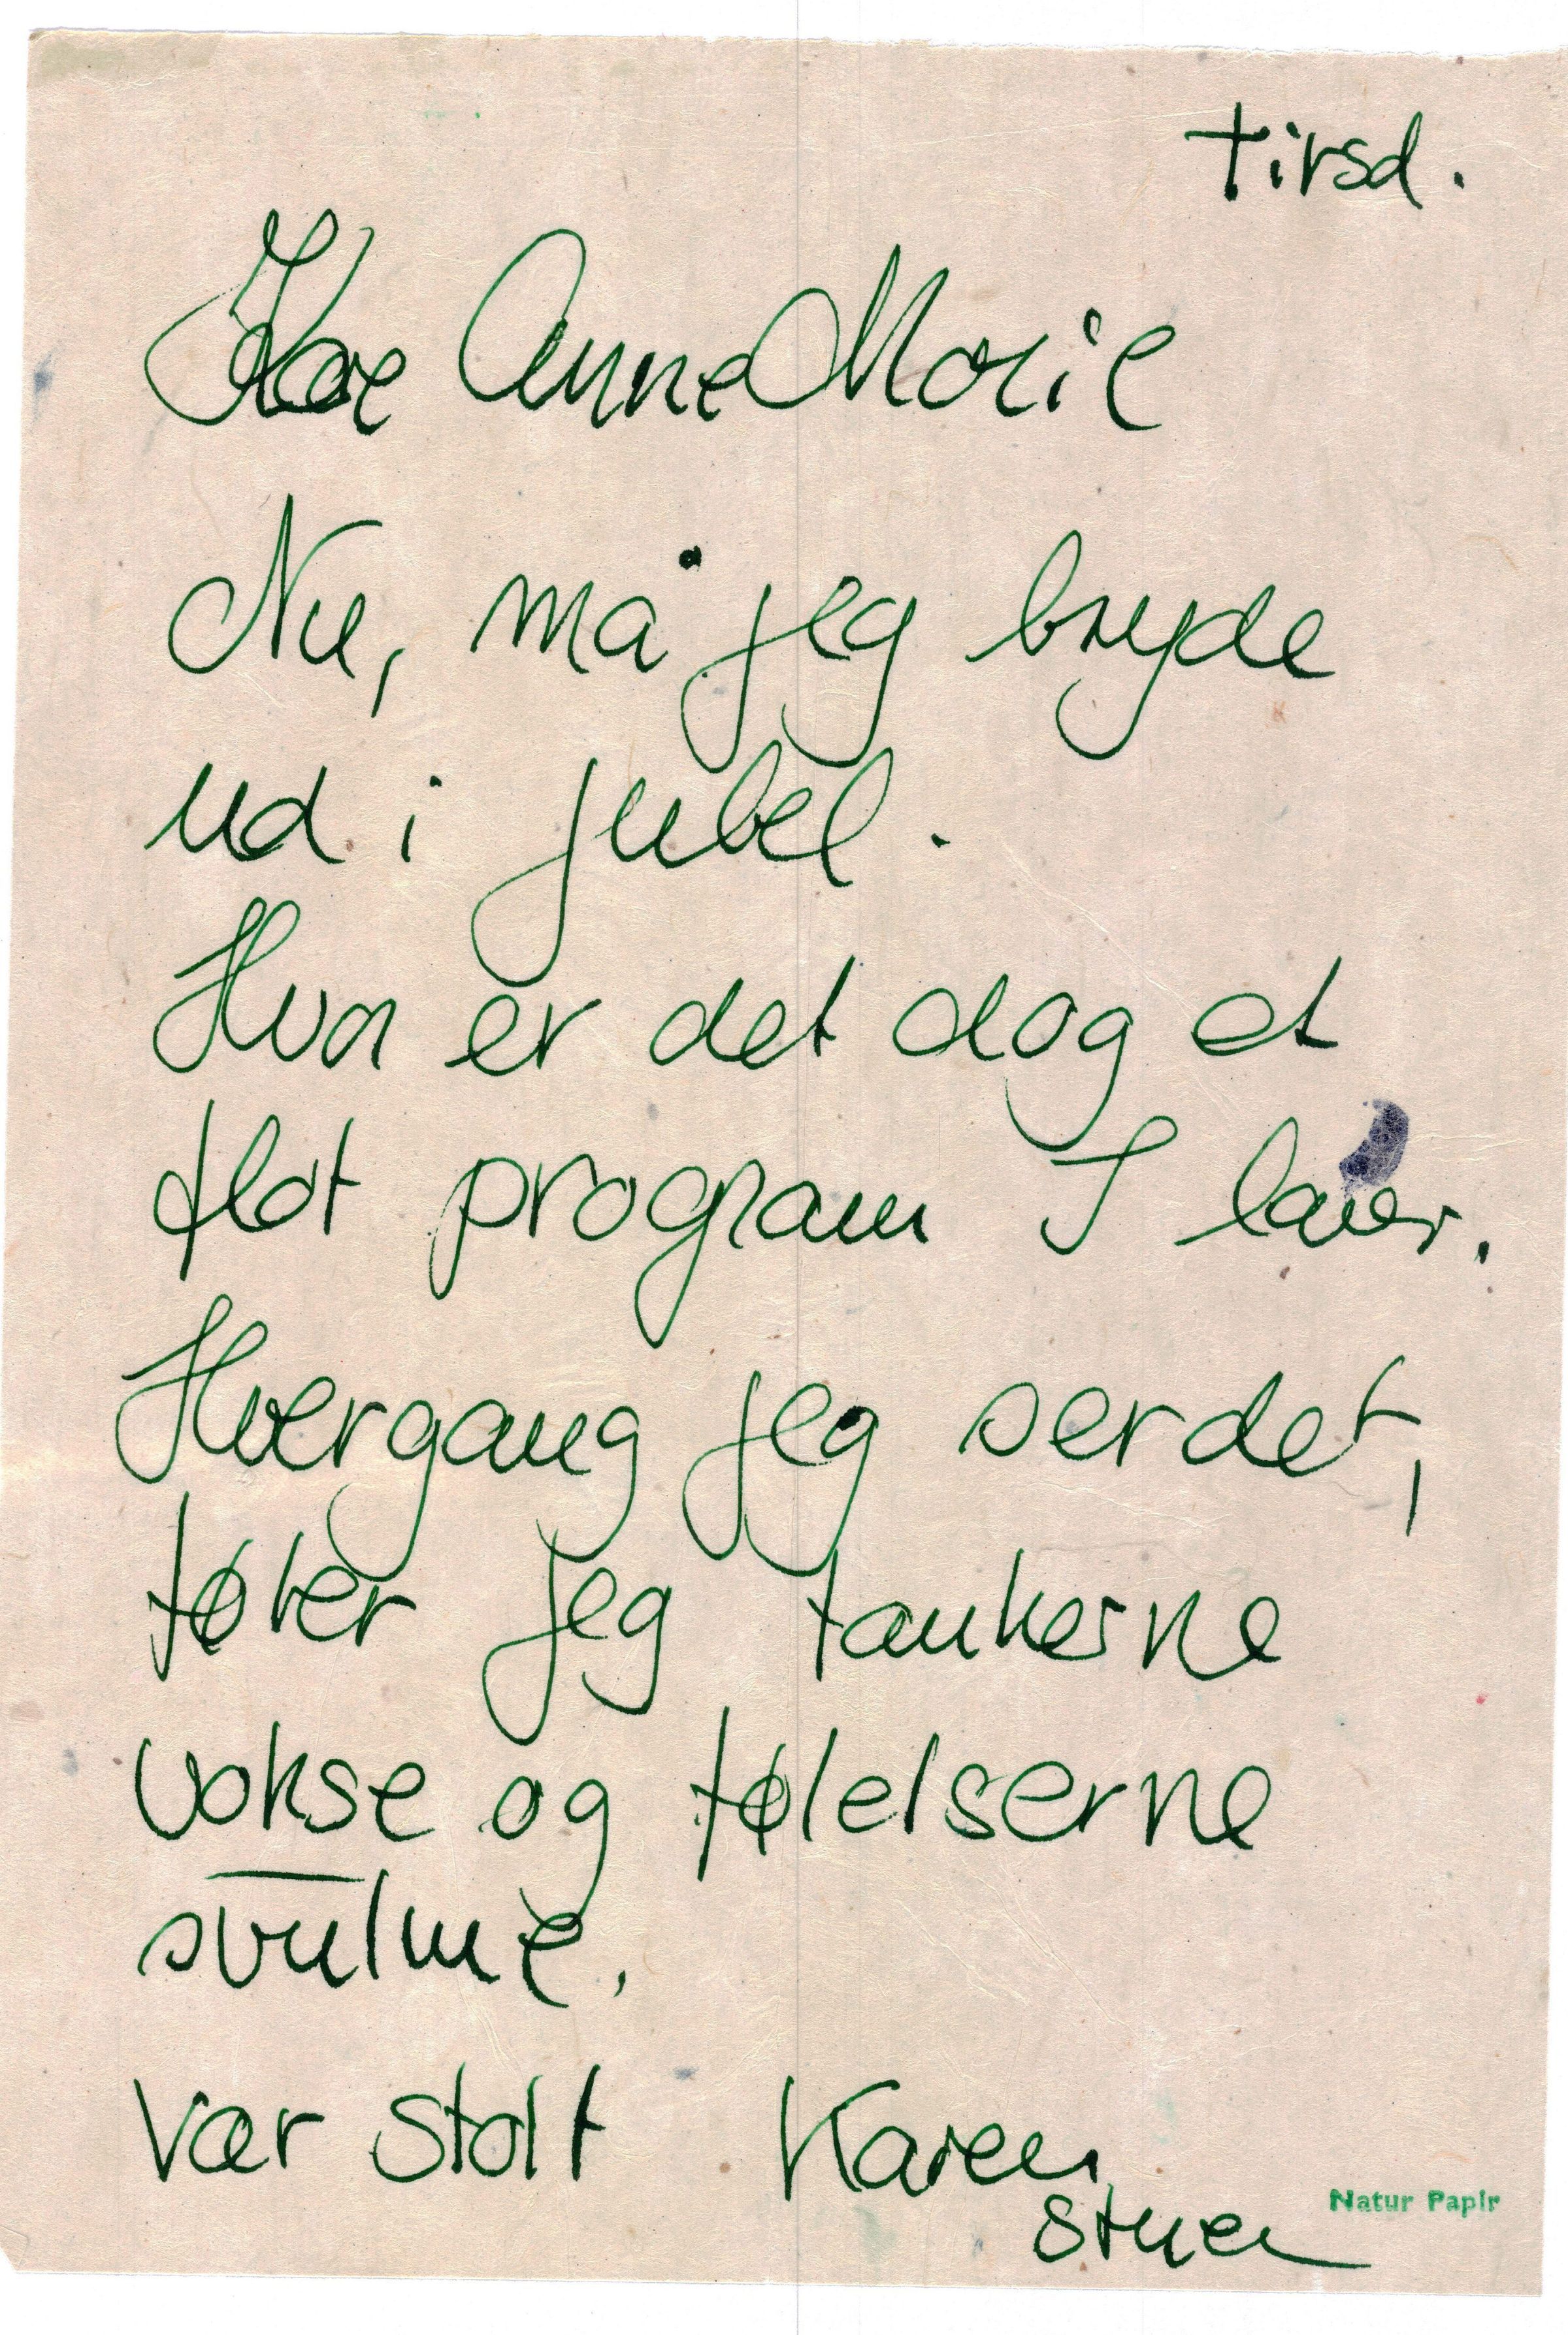 tirsd.
Kære Anne Marie
Nu, må jeg bryde
ud i jubel.
Hvor er det dog et
flot program I laver.
Hvergang jeg ser det,
føler jeg tankerne
vokse og følelserne
svulme.
Vær stolt Karen
Natur Papir